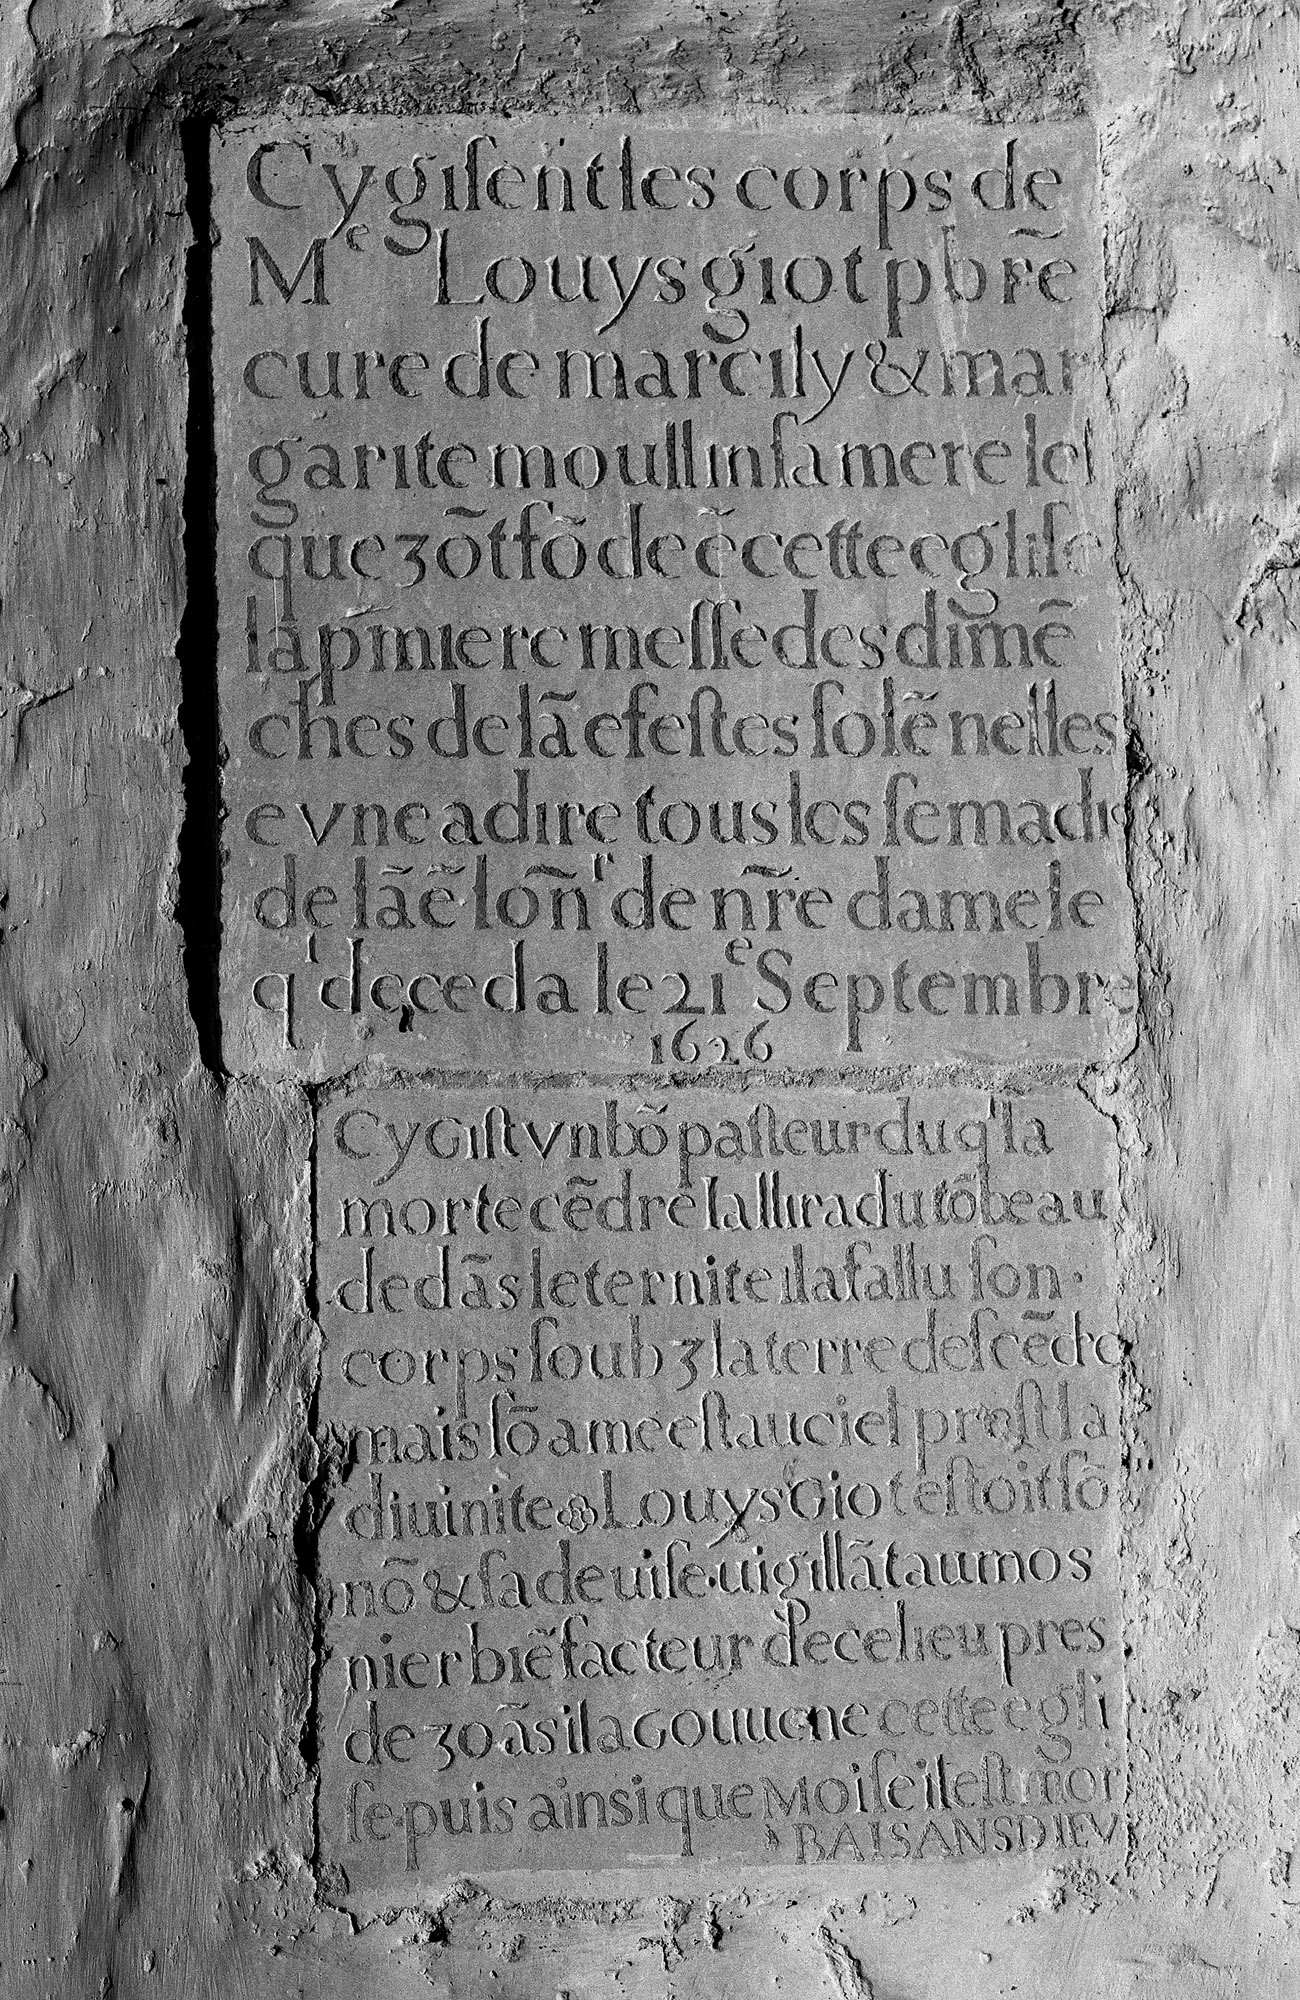 Cy giſent les corps de
Mᵉ Louys giot pbr̃e
cure de marcily & mar
garite moullin ſa mere leſ
que 3 õt fõde ẽ cette egliſe
la p̃miere meſſe des dimẽ
ches de lã e feſtes ſolẽnelles
e vne a dire tous les ſemadis
de lã ẽ lõnʳ de nr̃e dame le
qⁱ deceda le 21ᵉ Septembre
1626
Cy Giſt vn bõ paſteur duqˡ la
morte cẽdre la llira du tõbeau
dedãs leternite il a fallu ſon ·
corps ſoub 3 la terre deſcẽdre
mais ſõ ame eſt au ciel preſt la
diuinite Louys Giot eſtoit ſõ
nõ & ſa deuiſe · uigillãt aumos
nier biẽfacteur de ce lieu pres
de 30 ãs il a Gouuerne cette egli
ſe · puis ainsi que Moiſe il eſt mor
BAISANS DIEV